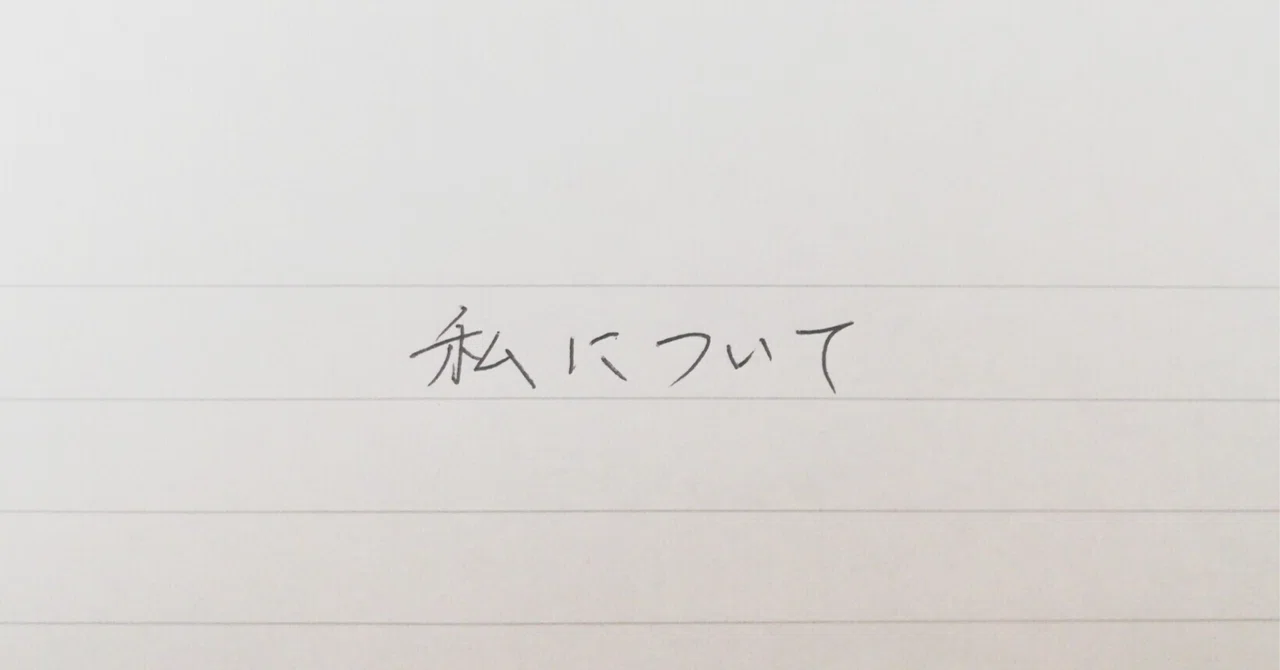 私について